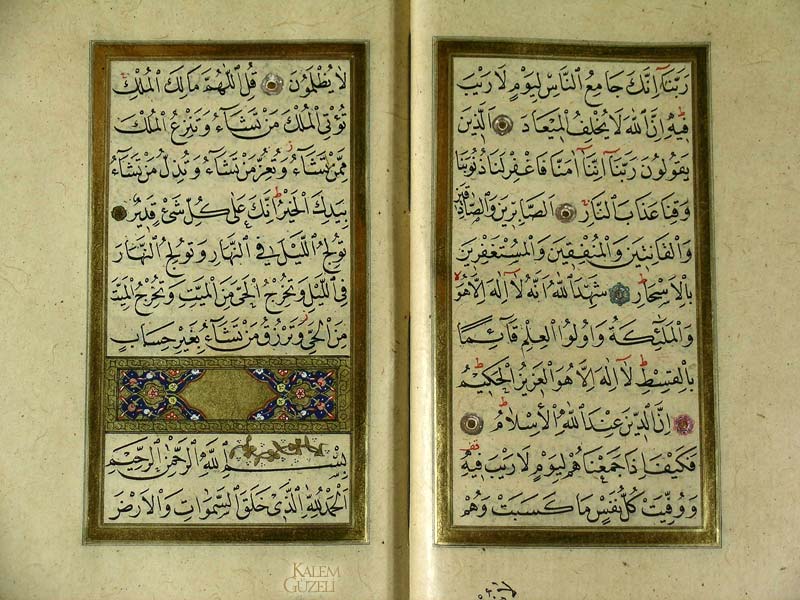 رَبَّنَا إِنَّكَ جَامِعُ النَّاسِ لِيَوْمٍ لَا رَيْبَ
فِيهِ إِنَّ اللَّهَ لَا يُخْلِفُ الْمِيعَادَ الَّذِينَ
يَقُولُونَ رَبَّنَا إِنَّنَا آمَنَّا فَاغْفِرْ لَنَا ذُنُوبَنَا
وَقِنَا عَذَابَ النَّارِ الصَّابِرِينَ وَالصَّادِقِينَ
وَالْقَانِتِينَ وَالْمُنْفِقِينَ وَالْمُسْتَغْفِرِينَ
بِالْأَسْحَارِ شَهِدَ اللَّهُ أَنَّهُ لَا إِلَٰهَ إِلَّا هُوَ
وَالْمَلَٰئِكَةُ وَأُولُوا الْعِلْمِ قَائِمًا
بِالْقِسْطِ لَا إِلَٰهَ إِلَّا هُوَ الْعَزِيزُ الْحَكِيمُ
إِنَّ الدِّينَ عِنْدَ اللَّهِ الْإِسْلَامُ
فَكَيْفَ إِذَا جَمَعْنَاهُمْ لِيَوْمٍ لَا رَيْبَ فِيهِ
وَوُفِّيَتْ كُلُّ نَفْسٍ مَا كَسَبَتْ وَهُمْ
لَا يُظْلَمُونَ قُلِ اللَّهُمَّ مَالِكَ الْمُلْكِ
تُؤْتِي الْمُلْكَ مَنْ تَشَاءُ وَتَنْزِعُ الْمُلْكَ
مِمَّنْ تَشَاءُ وَتُعِزُّ مَنْ تَشَاءُ وَتُذِلُّ مَنْ تَشَاءُ
بِيَدِكَ الْخَيْرُ إِنَّكَ عَلَىٰ كُلِّ شَيْءٍ قَدِيرٌ
تُولِجُ اللَّيْلَ فِي النَّهَارِ وَتُولِجُ النَّهَارَ
فِي اللَّيْلِ وَتُخْرِجُ الْحَيَّ مِنَ الْمَيِّتِ وَتُخْرِجُ الْمَيِّتَ
مِنَ الْحَيِّ وَتَرْزُقُ مَنْ تَشَاءُ بِغَيْرِ حِسَابٍ
بِسْمِ اللَّهِ الرَّحْمَٰنِ الرَّحِيمِ
الْحَمْدُ لِلَّهِ الَّذِي خَلَقَ السَّمَٰوَاتِ وَالْأَرْضَ
KALEM
GÜZELİ